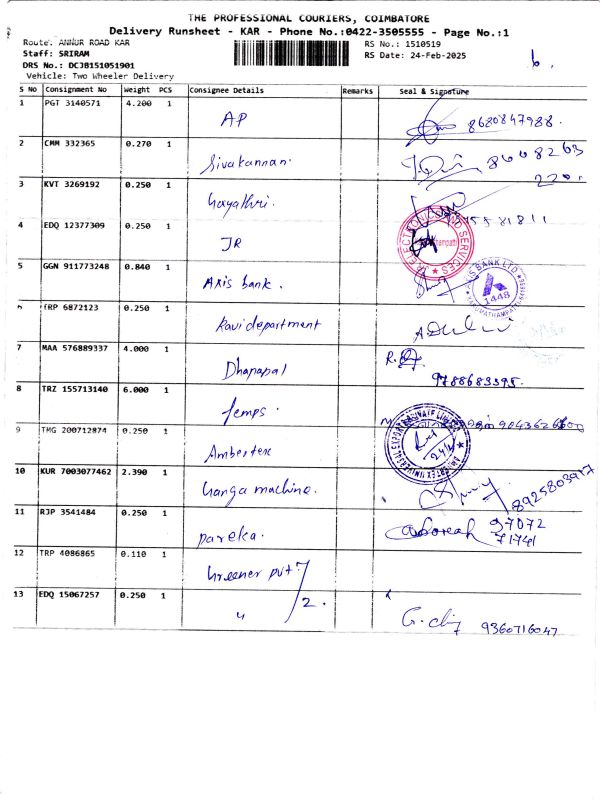 THE PROFESSIONAL COURIERS, COIMBATORE
Delivery Runsheet - KAR - Phone No.:0422-3505555 - Page No.:1
Route: ANNUR ROAD KAR RS No.: 1510519
Staff: SRIRAM RS Date: 24-Feb-2025
DRS No.: DCJB151051901
Vehicle: Two Wheeler Delivery
S No Consignment No Weight PCS Consignee Details Remarks Seal & Signature
1 PGT 3140571 4.200 1 AP 8680847988.
2 CMM 332365 0.270 1 Sivakannan.
3 KVT 3269192 0.250 1 Gayathri.
4 EDQ 12377309 0.250 1 JR
5 GGN 911773248 0.840 1 Axis bank.
ERP 6872123 0.250 1 Ravi department
7 MAA 576889337 4.000 1 Dhanapal 9788683595.
8 TRZ 155713140 6.000 1 Temps.
9 TMG 200712874 0.250 1 Ambertex
10 KUR 7003077462 2.390 1 Ganga machine. 8925803917
11 RJP 3541484 0.250 1 pareka. 97072
71741
12 TRP 4086865 0.110 1 Greener pvt
13 EDQ 15067257 0.250 1 " 2. 9360716047
BANK LTD
1448